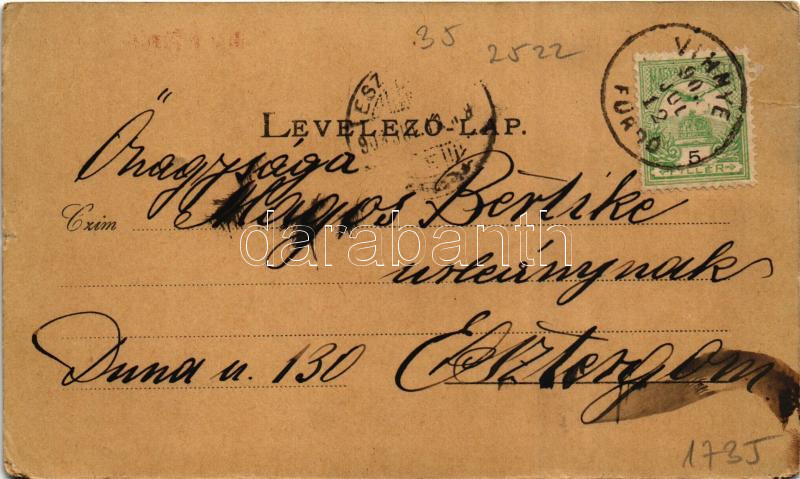 35
2522
VIHNYE
901 JUL 12
FÜRDŐ
MAGYAR
5
FILLÉR
ESZ
LEVELEZŐ-LAP.
Őnagysága
Czim Magos Bertike
darabanth
urleánynak
Duna u. 130 Esztergom
1735